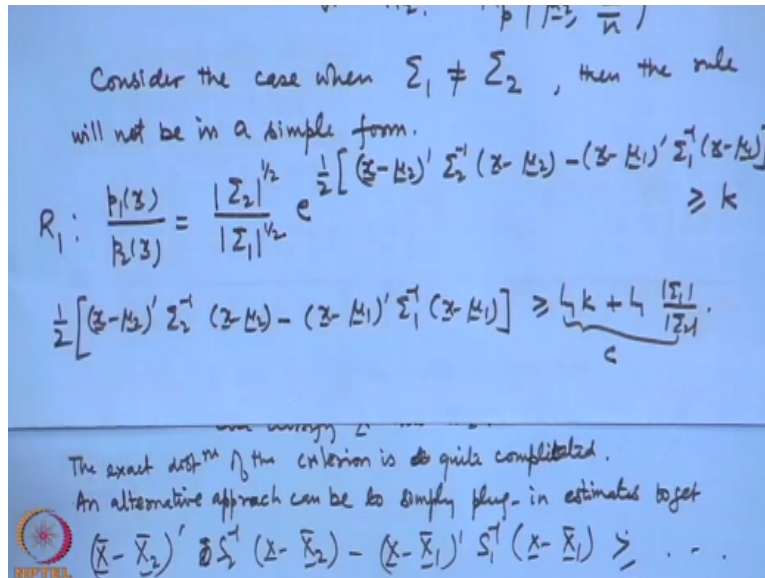 Consider the case when Σ₁ ≠ Σ₂ , then the rule
will not be in a simple form.
R₁ : p₁(x)/p₂(x) = |Σ₂|^{1/2}/|Σ₁|^{1/2} e^{1/2[(x-μ₂)' Σ₂⁻¹ (x-μ₂) - (x-μ₁)' Σ₁⁻¹ (x-μ₁)]} ≥ k
1/2 [(x-μ₂)' Σ₂⁻¹ (x-μ₂) - (x-μ₁)' Σ₁⁻¹ (x-μ₁)] ≥ ln k + ln |Σ₁|/|Σ₂| .
c
The exact distⁿ of the criterion is quite complicated.
An alternative approach can be to simply plug-in estimates to get
(x̄ - X̄₂)' S₂⁻¹ (x - X̄₂) - (x - X̄₁)' S₁⁻¹ (x - X̄₁) ≥ . . .
NPTEL